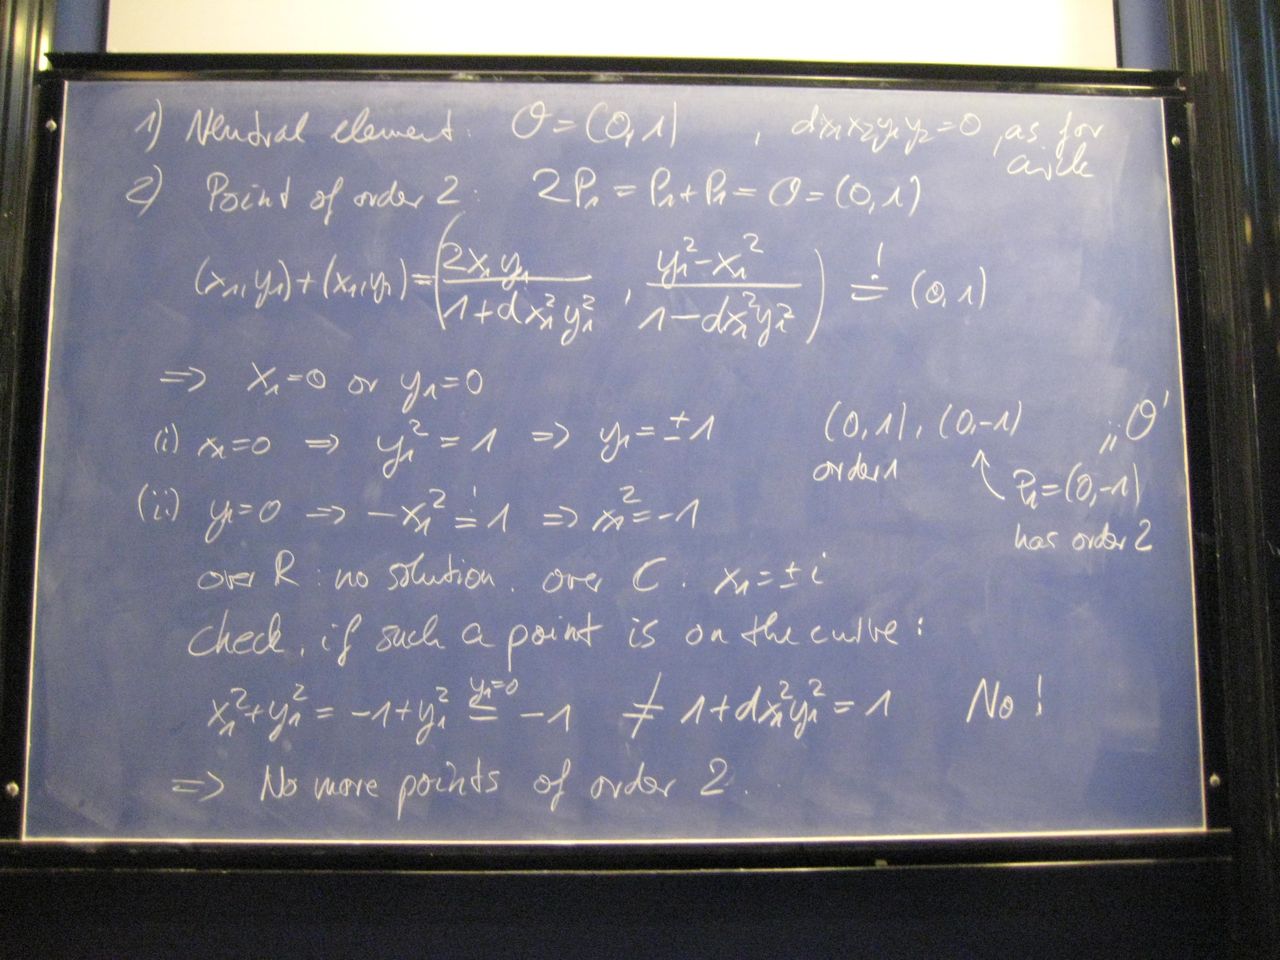 1) Neutral element: O = (0,1) , dx₁x₂y₁y₂=0, as for circle
2) Point of order 2: 2P₁ = P₁+P₁ = O = (0,1)
(x₁,y₁)+(x₁,y₁) = (2x₁y₁ / 1+dx₁²y₁² , y₁²-x₁² / 1-dx₁²y₁²) =! (0,1)
⇒ x₁=0 or y₁=0
(i) x₁=0 ⇒ y₁²=1 ⇒ y₁=±1 (0,1), (0,-1) „O'
order 1 ↖ P₁=(0,-1)
(ii) y₁=0 ⇒ -x₁² =! 1 ⇒ x₁²=-1
has order 2
over R: no solution. over C: x₁=±i
Check, if such a point is on the curve:
x₁²+y₁² = -1+y₁² = (y₁=0) -1 ≠ 1+dx₁²y₁² = 1 No!
⇒ No more points of order 2.